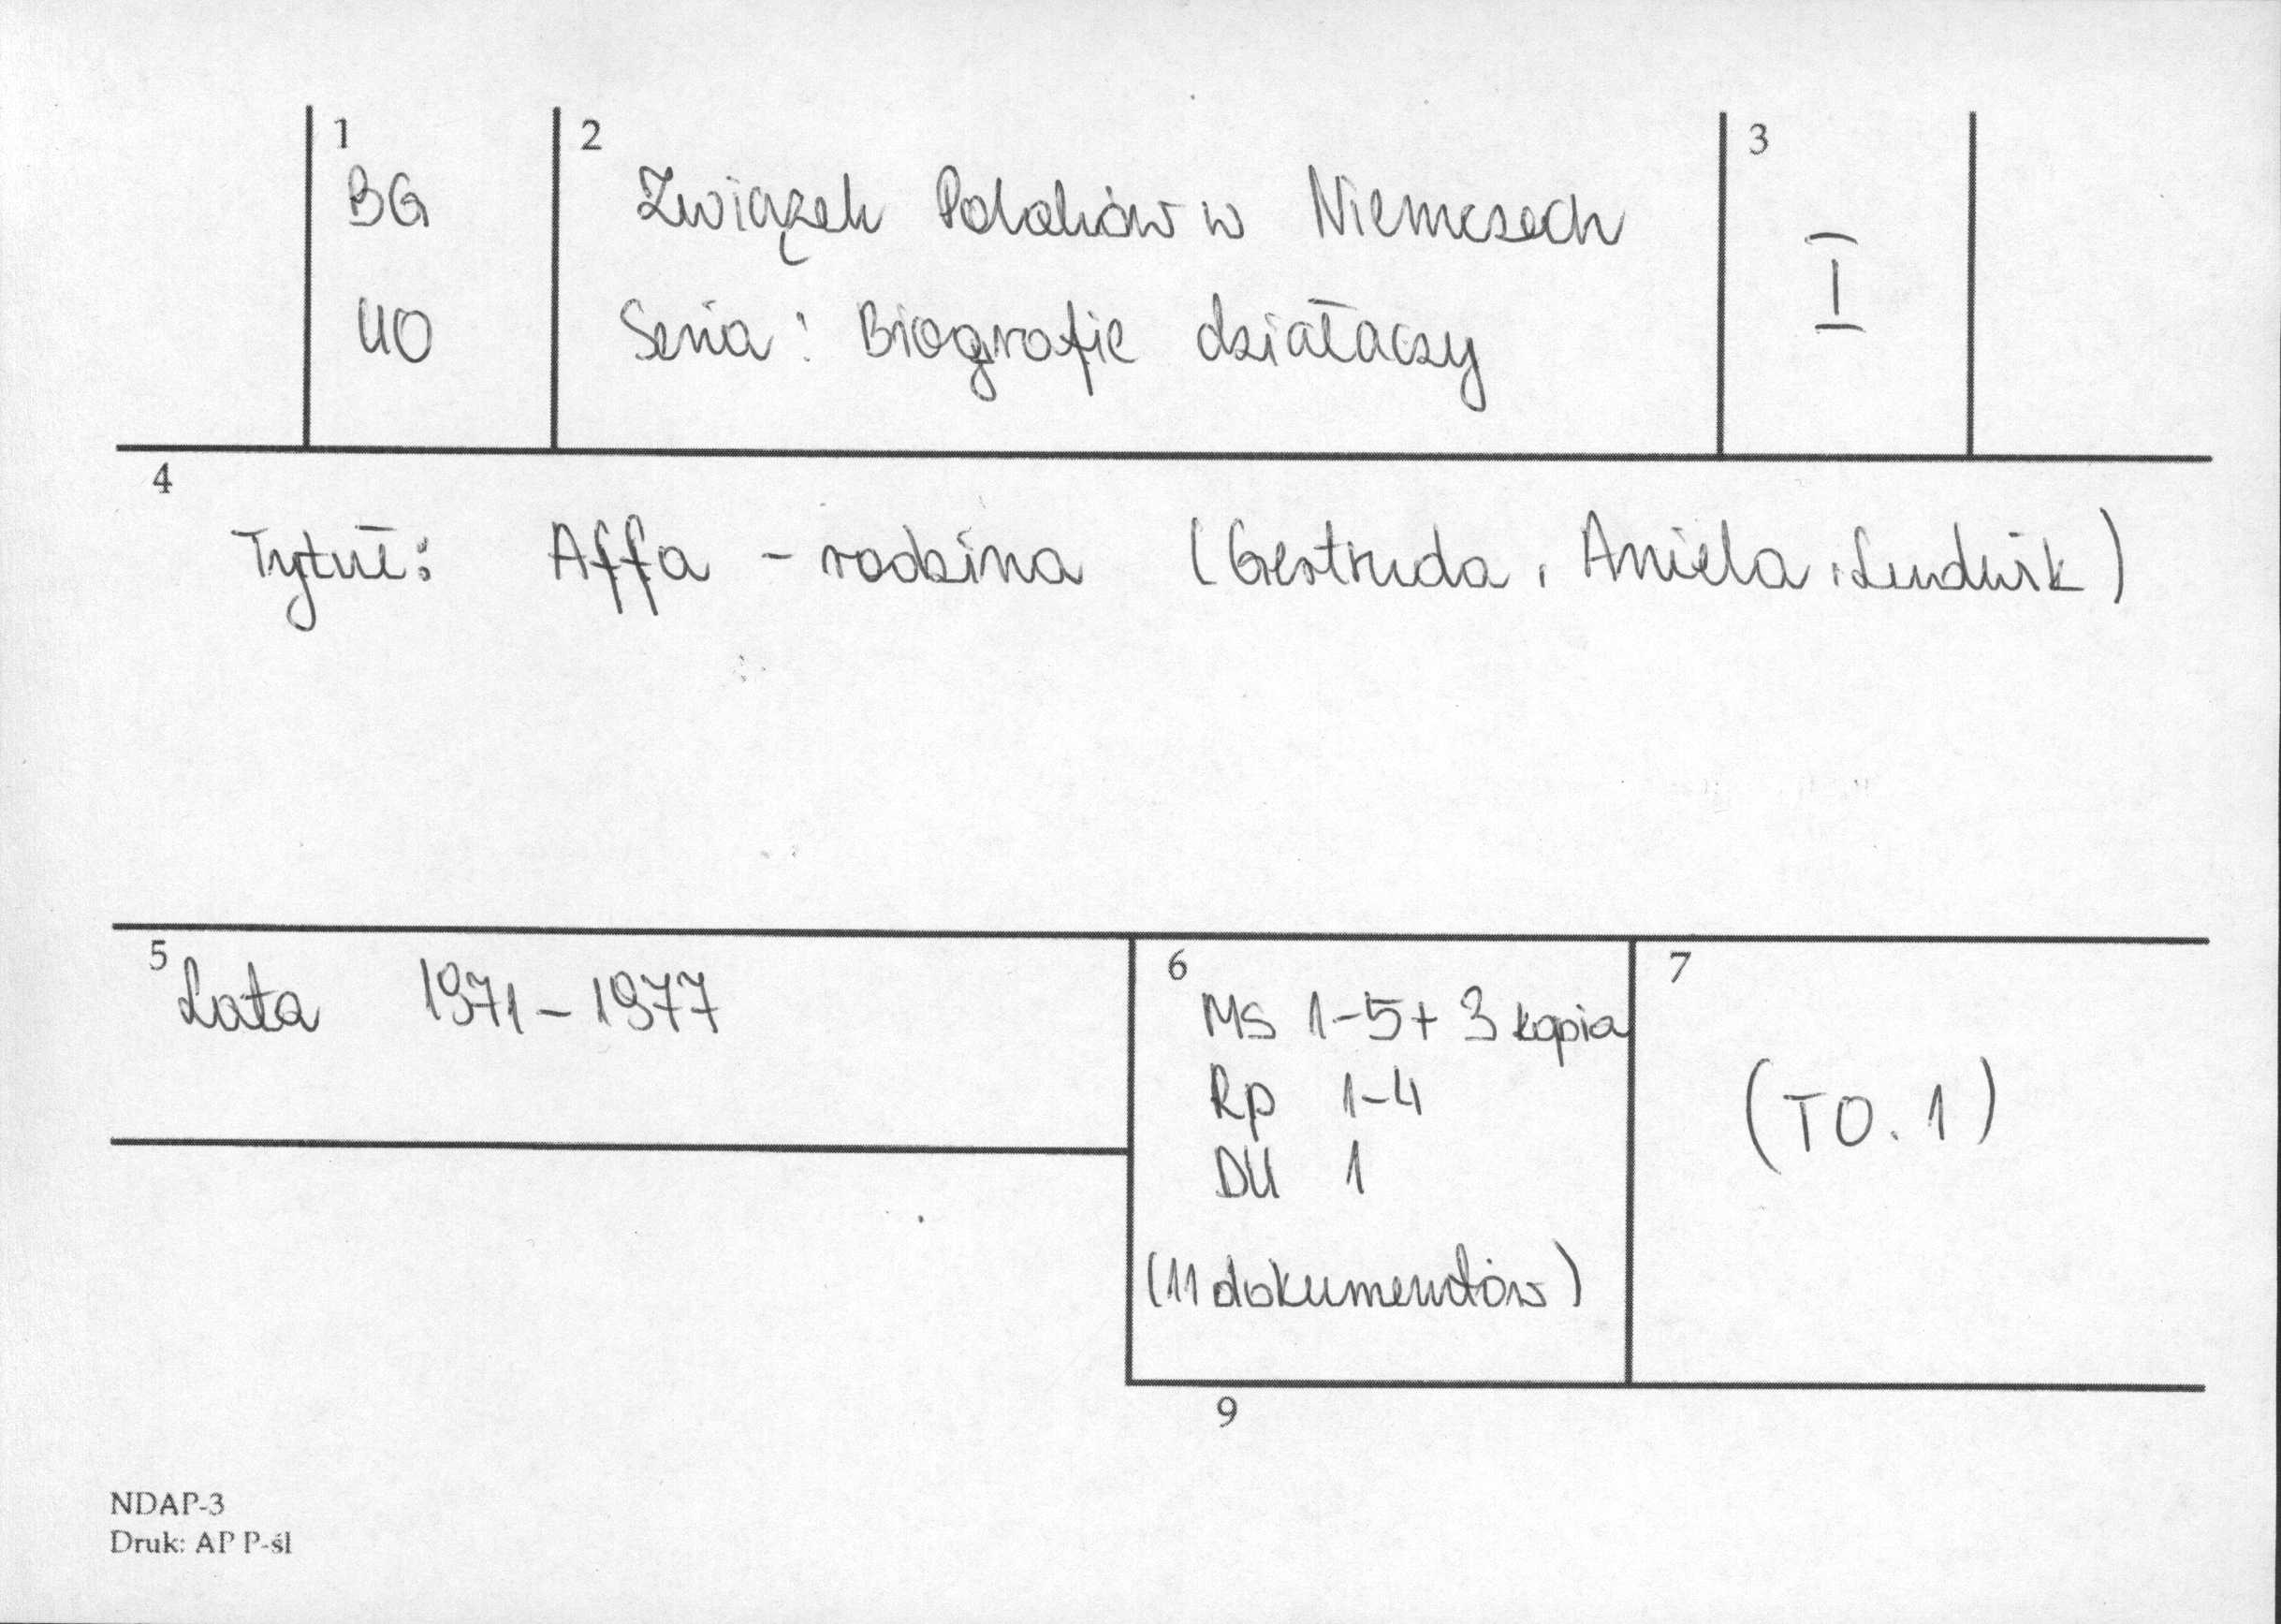 1
BG
UO
2
Związek Polaków w Niemczech
Seria: Biografie działaczy
3
I
4
Tytuł: Affa - rodzina (Gertruda, Aniela, Ludwik)
5
Lata 1971-1977
6
MS 1-5+ 3 kopia
Rp 1-4
DU 1
(11 dokumentów)
7
(TO. 1)
9
NDAP-3
Druk: AP P-śl